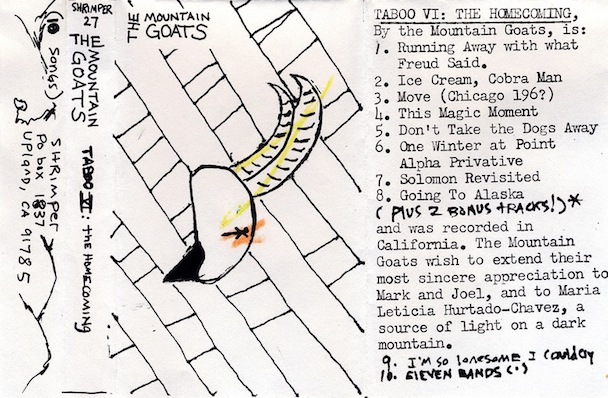 10 SONGS)
SHRIMPER
PO box 1837
UPLAND, CA 91785
SHRIMPER
27
THE MOUNTAIN
GOATS
TABOO VI: the HOMECOMING
THE MOUNTAIN
GOATS
TABOO VI: THE HOMECOMING,
By the Mountain Goats, is:
1. Running Away with what
Freud Said.
2. Ice Cream, Cobra Man
3. Move (Chicago 196?)
4. This Magic Moment
5. Don't Take the Dogs Away
6. One Winter at Point
Alpha Privative
7. Solomon Revisited
8. Going To Alaska
(PLUS 2 BONUS TRACKS!)*
and was recorded in
California. The Mountain
Goats wish to extend their
most sincere appreciation to
Mark and Joel, and to Maria
Leticia Hurtado-Chavez, a
source of light on a dark
mountain.
9. I'M SO lonesome I Could Cry
10. ELEVEN BANDS